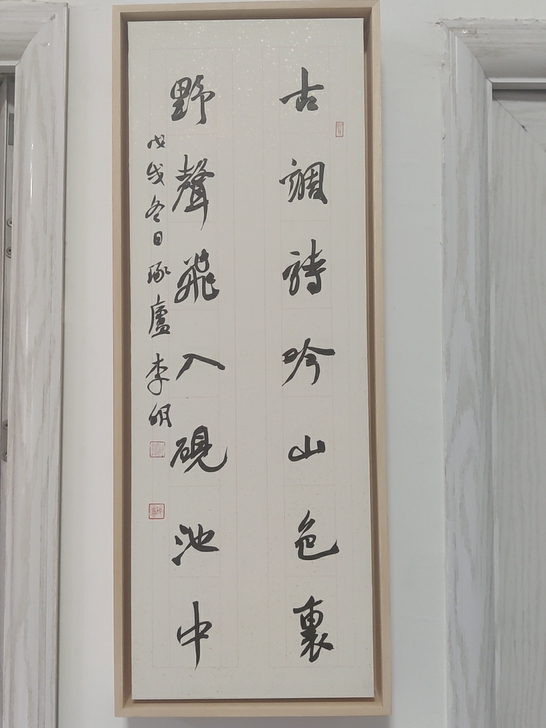 古調詩吟山色裏
野聲飛入硯池中
戊戌冬日琢廬李明